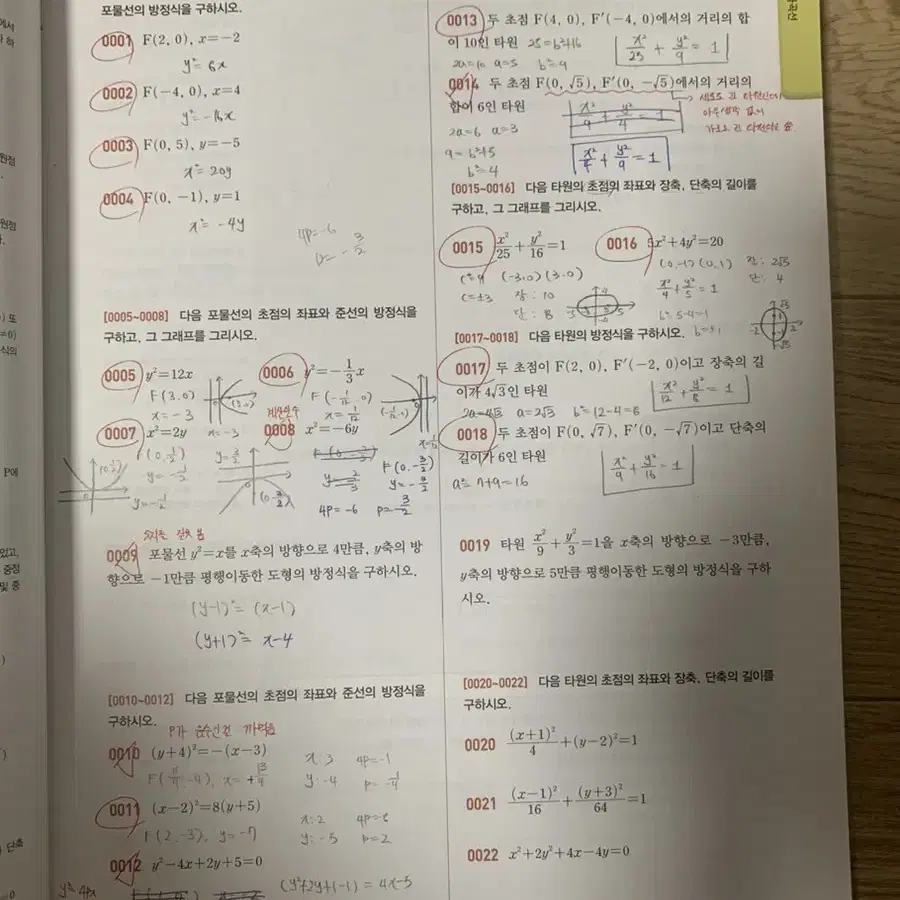 포물선의 방정식을 구하시오.
0001 F(2, 0), x=-2
0002 F(-4, 0), x=4
y²=-16x
0003 F(0, 5), y=-5
x²=20y
0004 F(0, -1), y=1
x²=-4y
4p=-6
[0005~0008] 다음 포물선의 초점의 좌표와 준선의 방정식을
구하고, 그 그래프를 그리시오.
0005 y²=12x
F(3.0)
x=-3
x=-3
0006 y²=-1/3x
0007 x²=2y
F(0,1/2)
y=-1/2
y=-1/2
0008 x²=-6y
계산실수
F(0.-3/2)
4p=-6
0009 포물선 y²=x를 x축의 방향으로 4만큼, y축의 방
향으로 -1만큼 평행이동한 도형의 방정식을 구하시오.
(y-1)²=(x-1)
(y+1)²=x-4
[0010~0012] 다음 포물선의 초점의 좌표와 준선의 방정식을
구하시오.
0010 (y+4)²=-(x-3)
x:3 4p=-1
y:-4 p=-1/4
0011 (x-2)²=8(y+5)
F(2,-3), y=-7
x:2 4p=8
y:-5 p=2
0012 y²-4x+2y+5=0
y²=4px
0013 두 초점 F(4, 0), F'(-4, 0)에서의 거리의 합
이 10인 타원 25=b²+16
2a=10 a=5 b²=9
x²/25 + y²/9 = 1
0014 두 초점 F(0, √5), F'(0, -√5)에서의 거리의
합이 6인 타원
2a=6 a=3
9=b²+5
b²=4
x²/9 + y²/4 = 1
x²/4 + y²/9 = 1
[0015~0016] 다음 타원의 초점의 좌표와 장축, 단축의 길이를
구하고, 그 그래프를 그리시오.
0015 x²/25 + y²/16 = 1
c²=9 (-3.0) (3.0)
c=±3 장: 10
단: 8
0016 5x²+4y²=20
(0,-1) (0,1) 장: 2√5
x²/4 + y²/5 = 1 단: 4
[0017~0018] 다음 타원의 방정식을 구하시오.
0017 두 초점이 F(2, 0), F'(-2, 0)이고 장축의 길
이가 4√3인 타원
2a=4√3 a=2√3 b²=12-4=8
x²/12 + y²/8 = 1
0018 두 초점이 F(0, √7), F'(0, -√7)이고 단축의
길이가 6인 타원
a²=7+9=16
x²/9 + y²/16 = 1
0019 타원 x²/9 + y²/3 = 1을 x축의 방향으로 -3만큼,
y축의 방향으로 5만큼 평행이동한 도형의 방정식을 구하
시오.
[0020~0022] 다음 타원의 초점의 좌표와 장축, 단축의 길이를
구하시오.
0020 (x+1)²/4 + (y-2)² = 1
0021 (x-1)²/16 + (y+3)²/64 = 1
0022 x²+2y²+4x-4y=0